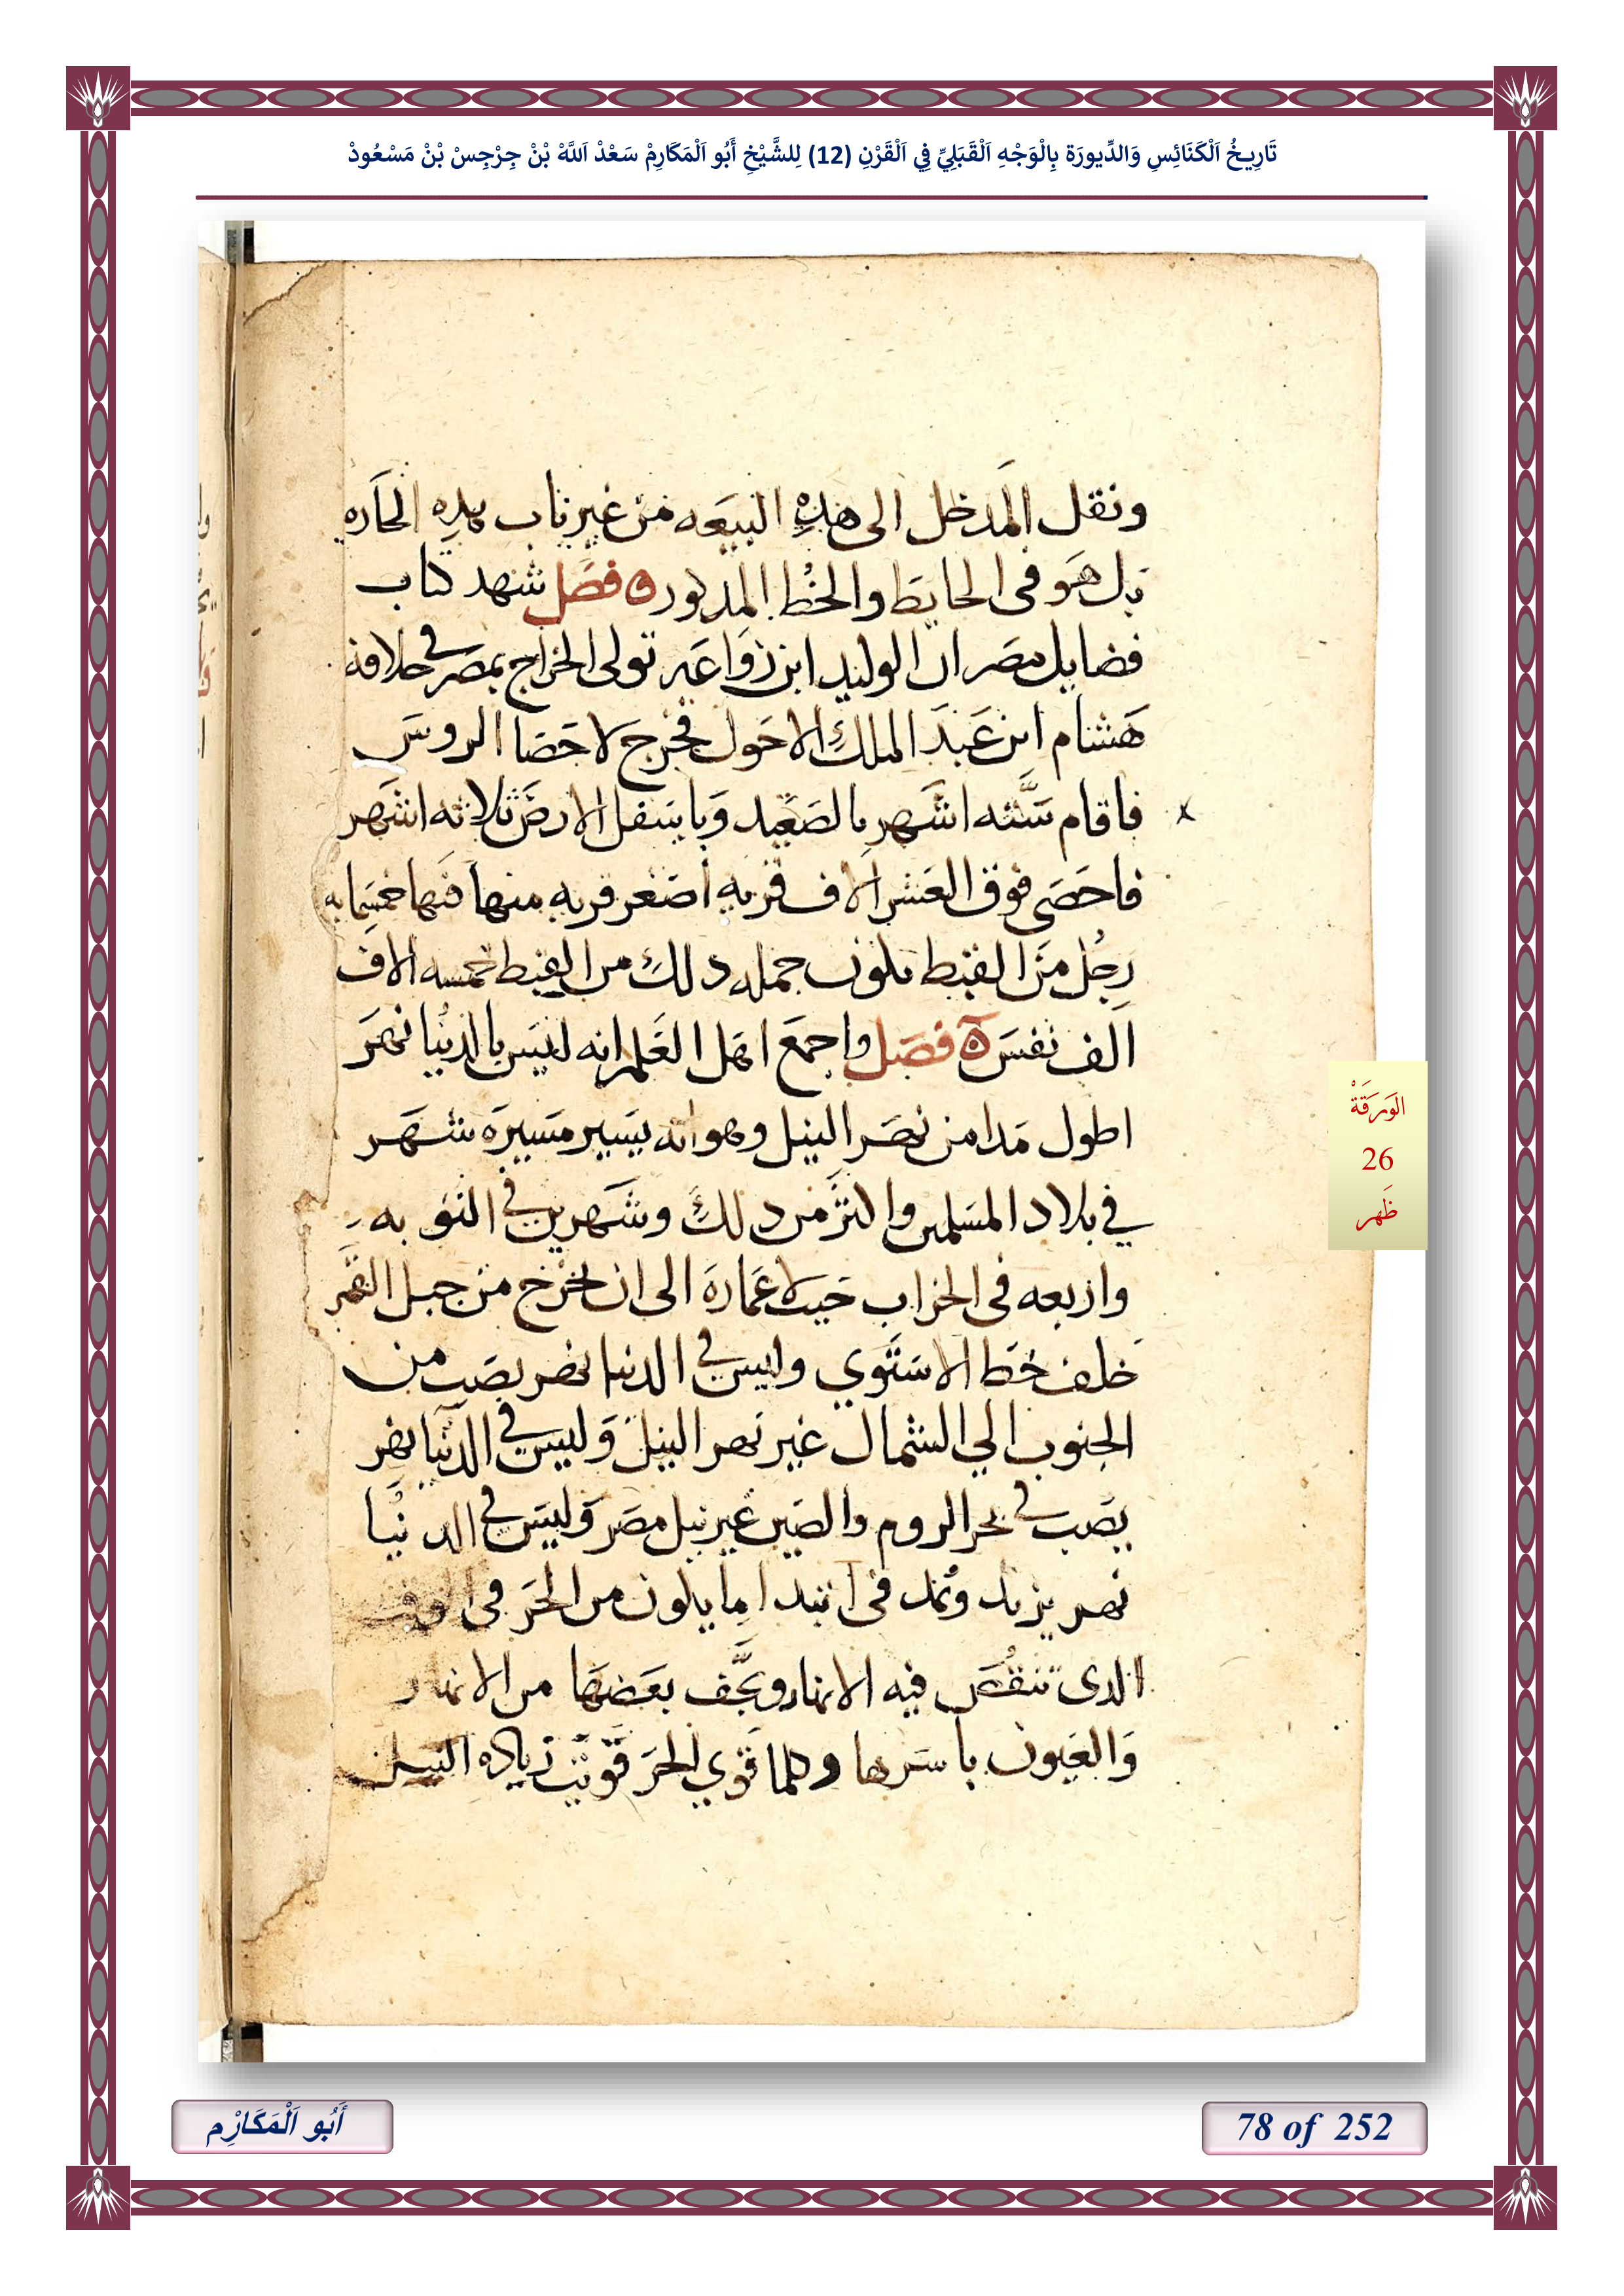 تَارِيخُ اَلْكَنَائِسِ وَالدِّيورَة بِالْوَجْهِ اَلْقَبَلِيِّ فِي اَلْقَرْنِ (12) لِلشَّيْخِ أَبُو اَلْمَكَارِمْ سَعْدْ اَللَّهْ بْنْ جِرْجِسْ بْنْ مَسْعُودْ
ونقل المدخل الى هذه البيعه من غير باب بهذه الحاره
بل هو فى الحايط والخط المذكور ه فصل شهد كتاب
فضايل مصر ان الوليد ابن زواعه تولى الخراج بمصر في خلافة
هشام ابن عبد الملك الاحول فخرج لاحصا الروس
فاقام سته اشهر بالصعيد وباسفل الارض ثلاثه اشهر
فاحصى فوق العشر الاف قريه اصغر قريه منها فيها خمسمايه
رجل من القبط يكون جمله دلك من القبط خمسه الاف
الف نفس ه فصل واجمع اهل العلم انه ليس بالدنيا نهر
اطول مدا من نهر النيل وهو انه يسير مسيرة شهر
في بلاد المسلمين واكثر من دلك وشهرين في النوبه
واربعه فى الخراب حيث لا عمارة الى ان يخرج من جبل القمر
خلف خط الاستوي وليس في الدنيا نهر يصب من
الجنوب الي الشمال غير نهر النيل وليس في الدنيا نهر
يصب في بحر الروم والصين غير نيل مصر وليس في الدنيا
نهر يزيد ويمد فى ابتدا ما يكون من الحر فى الوقت
الدى تنقص فيه الانهار ويجف بعضها من الانهار
والعيون باسرها وكلما قوي الحر قويت زياده النيل
الوَرَقَةْ
26
ظَهر
أَبُو اَلْمَكَارِْم
78 of 252